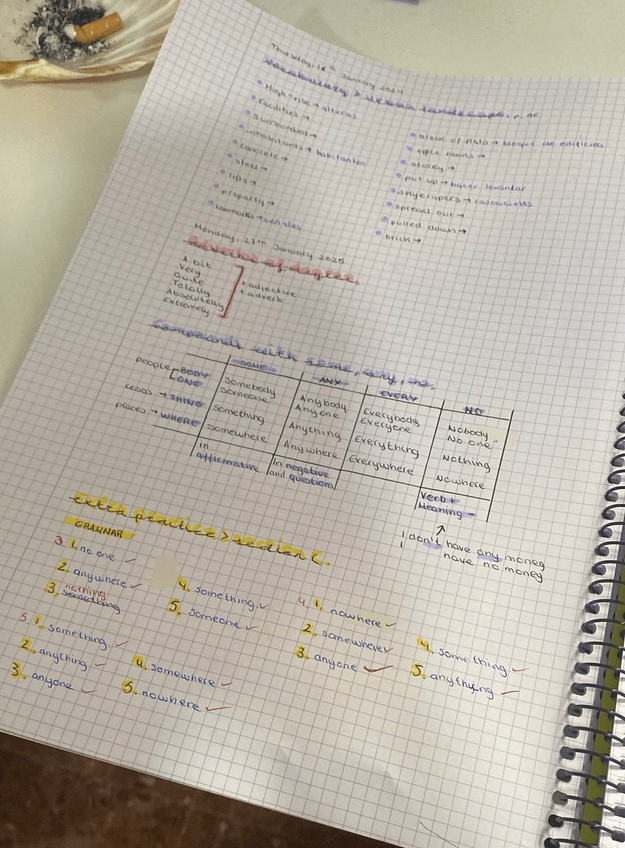 Thursday, 16th January 2025
Vocabulary > urban landscape. p.
High-rise → alturas
facilities →
surrounded →
inhabitants → habitantes
concrete →
steel →
lifts →
property →
landmarks → señales
block of flats → bloque de edificios
storey →
put up → hacer, levantar
skyscrapers → rascacielos
spread out →
pulled down →
brick →
Monday, 27th January 2025
Adverbs of degree.
A bit
Very
Quite
Totally
Absolutelly
extremely
+ adjective
+ adverb
Compounds with some, any, no.
SOME
ANY
EVERY
NO
people BODY
ONE
Somebody
Someone
Anybody
Anyone
Everybody
Everyone
Nobody
No one
cosas → THING
Something
Anything
Everything
Nothing
places → WHERE
Somewhere
Anywhere
Everywhere
Nowhere
in
affirmative
In negative
and questions
verb +
Meaning -
I don't have any money
I have no money
Extra practice > section C.
GRAMMAR
3. 1. no one ✓
2. anywhere ✓
3. nothing something
4. something ✓
5. someone ✓
4. 1. nowhere ✓
2. somewhere ✓
3. anyone ✓
4. something ✓
5. anything ✓
5. 1. something ✓
2. anything ✓
3. anyone ✓
4. somewhere ✓
5. nowhere ✓